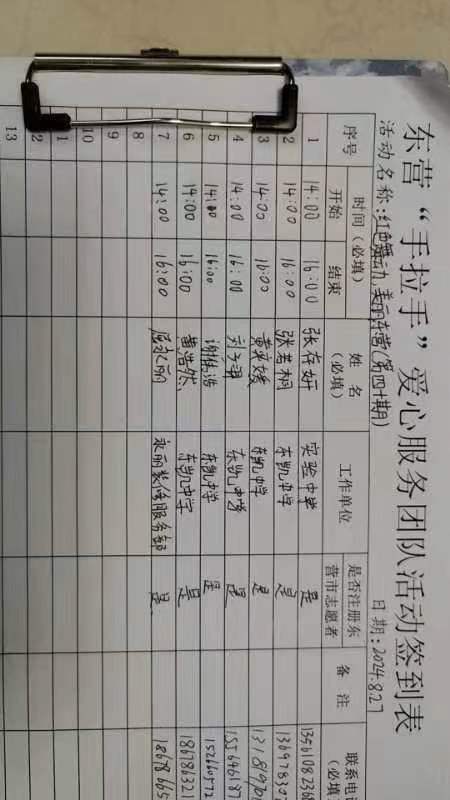 东营“手拉手”爱心服务团队活动签到表
活动名称:红色舞动,美丽东营(第四十期) 日期:2024.8.27
序号 时间(必填) 姓名(必填) 工作单位 是否注册东营市志愿者 备注 联系电话(必填)
开始 结束
1 14:00 16:00 张存妍 实验中学 是
2 14:00 16:00 张若桐 东凯中学 是
3 14:00 16:00 黄 媛 东凯中学 是
4 14:00 16:00 刘子 东凯中学 是
5 14:00 16:00 谢 浩 东凯中学 是
6 14:00 16:00 黄浩然 东凯中学 是
7 14:00 16:00 丽 永丽装修服务部 是
8
9
10
1
12
13